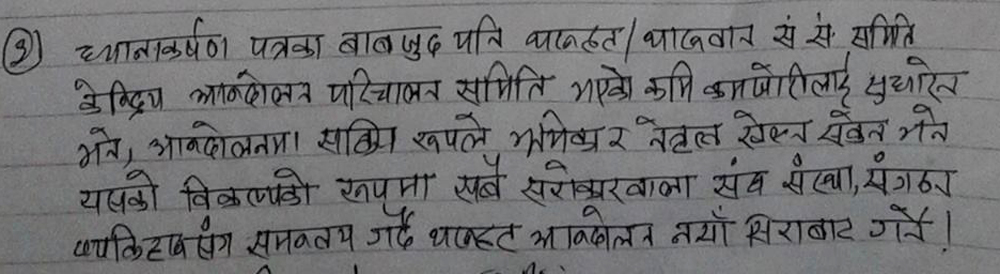 ③ ध्यानाकर्षण पत्रका बावजुद पनि थारुहट/थारुवान सं सं. समिति
केन्द्रिय आन्दोलन परिचालन समिति भएको कमि कमजोरीलाई सुधारेन
भने, आन्दोलनमा सक्रिय रुपले भूमिका र नेतृत्व खेल्न सकेन भने
यसको विकल्पको रुपमा सबै सरोकारवाला संघ संस्था, संगठन
व्यक्तित्व संग समन्वय गर्दै थारुहट आन्दोलन नयाँ सिराबाट गर्ने।